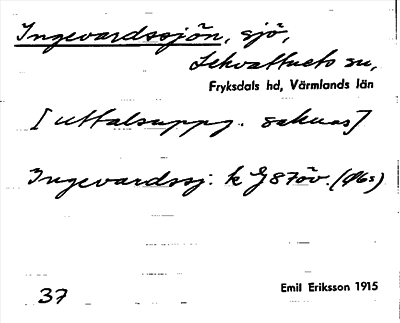 Ingevardssjön, sjö,
Lekvattnets sn,
Fryksdals hd, Värmlands län
[uttalsuppg. saknas]
Ingevardssj: k G87öv. (Ø6s)
37
Emil Eriksson 1915